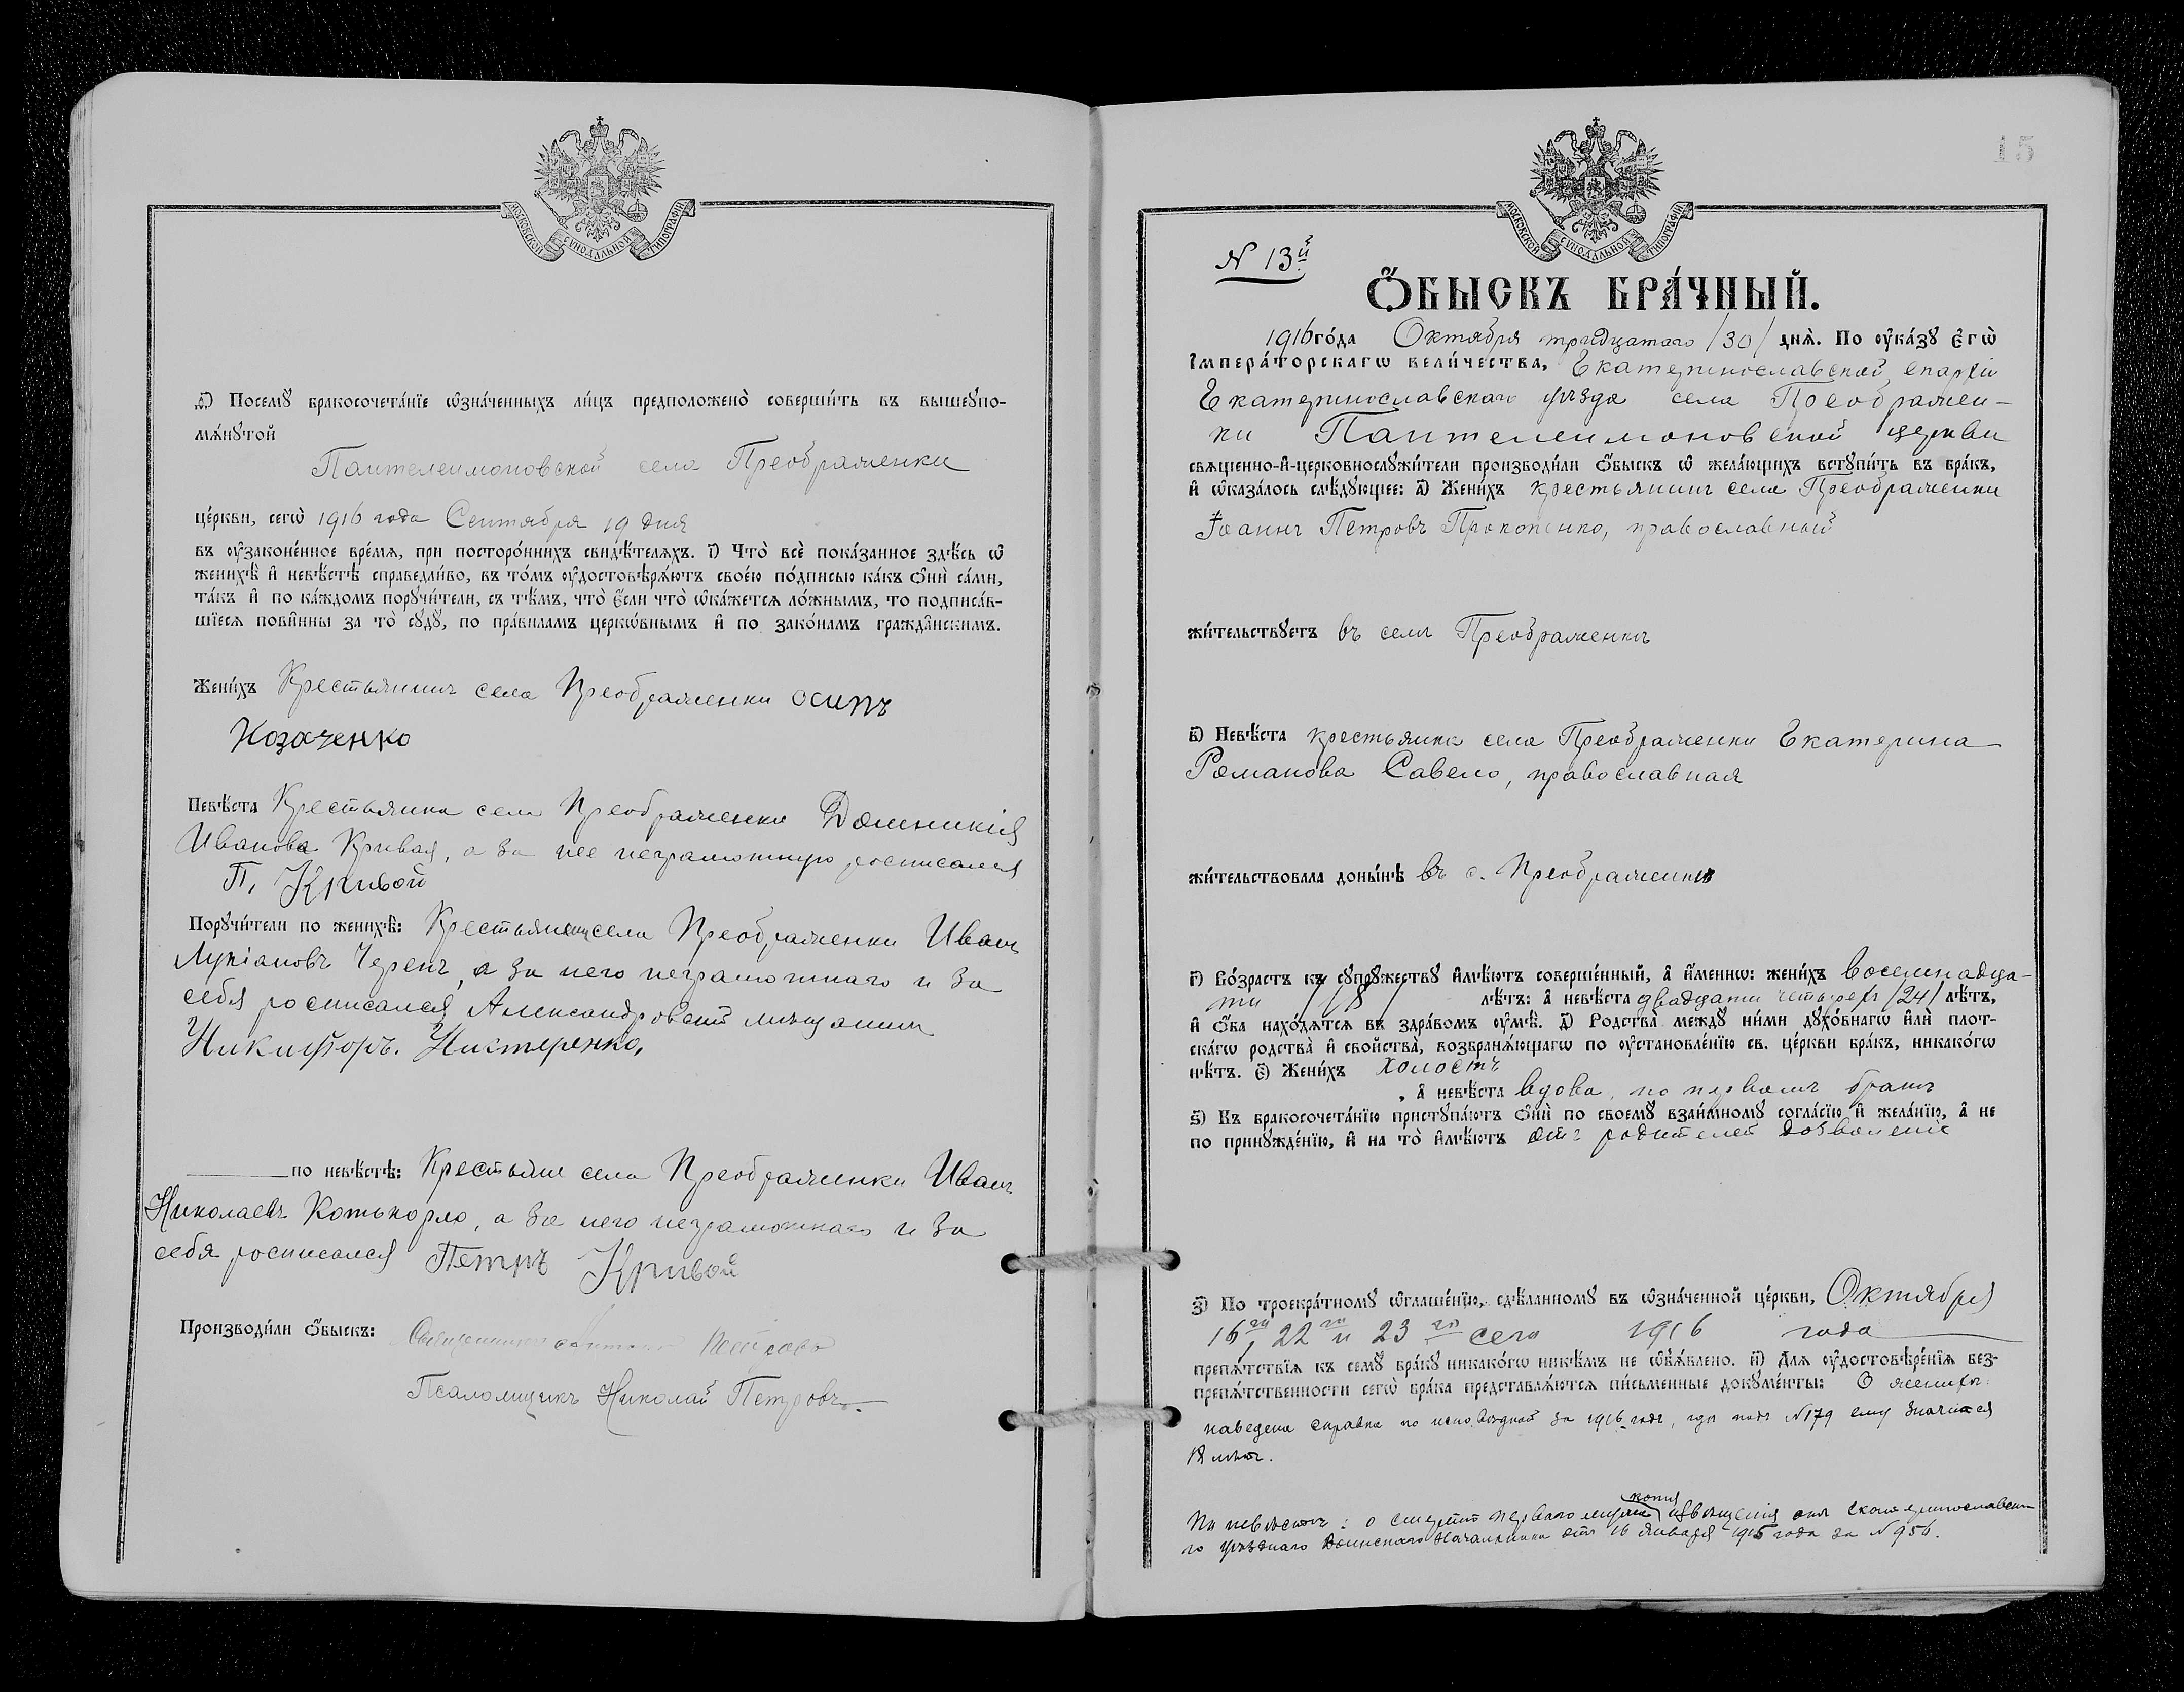 МОСКОВСКОЙ СѴНОДАЛЬНОЙ ТИПОГРАФІИ
ѳ҃) Посемꙋ̀ бракосочета́нїе ѡ҆зна́ченныхъ ли́цъ предположено̀ соверши́ть въ вышеꙋпо-
мѧ́нꙋтой
Пантелеимоновской села Преображенки
це́ркви, сегѡ̀ 1916 года Сентября 19 дня
въ ᲂу҆законе́нное вре́мѧ, при посторо́ннихъ свидѣ́телѧхъ. і҃) Что̀ всѐ пока́занное здѣ́сь ѡ҆
женихѣ̀ и҆ невѣ́стѣ справедли́во, въ то́мъ ᲂу҆достовѣрѧ́ютъ свое́ю по́дписью ка́къ ѻ҆нѝ са́ми,
та́къ и҆ по ка́ждомъ порꙋчи́тели, съ тѣ́мъ, что̀ є҆́сли что̀ ѡ҆ка́жетсѧ ло́жнымъ, то подписа́в-
шїесѧ пови́нны за то̀ сꙋдꙋ̀, по пра́виламъ церко́внымъ и҆ по зако́намъ гражда́нскимъ.
Жени́хъ Крестьянинъ села Преображенки осипъ
Козаченко
Невѣ́ста Крестьянка села Преображенки Домникія
Иванова Кривая, а за нее неграмотную росписался
П. Кривой
Порꙋчи́тели по женихѣ̀: Крестьянинъ села Преображенки Иванъ
Лукіановъ Черенъ, а за него неграмотнаго и за
себя росписался Александровскій мѣщанинъ
Никифоръ. Нистеренко,
по невѣ́стѣ: Крестьяне села Преображенки Иванъ
Николаевъ Котькорло, а за него неграмотнаго и за
себя росписался Петръ Кривой
Производи́ли ѻ҆́быскъ: Священникъ
Псаломщикъ Николай Петровъ.
15
МОСКОВСКОЙ СѴНОДАЛЬНОЙ ТИПОГРАФІИ
N 13й
Ѻ҆́БЫСКЪ БРА́ЧНЫЙ.
1916 го́да Октября тридцатаго /30/ днѧ̀. По ᲂу҆ка́зꙋ Є҆гѡ̀
І҆мпера́торскагѡ вели́чества, Екатеринославской епархіи
Екатеринославскаго уѣзда села Преображен-
ки Пантелеимоновской церкви
свѧщенно-и҆-церковнослꙋжи́тели производи́ли ѻ҆́быскъ ѡ҆ жела́ющихъ встꙋпи́ть въ бра́къ,
и҆ ѡ҆каза́лось слѣ́дꙋющее: а҃) Жени́хъ крестьянинъ села Преображенки
Іоаннъ Петровъ Прокопенко, православный
жи́тельствꙋетъ въ селѣ Преображенкѣ
в҃) Невѣ́ста крестьянка села Преображенки Екатерина
Романова Савело, православная
жи́тельствовала доны́нѣ въ с. Преображенкѣ
г҃) Во́зрастъ къ сꙋпрꙋ́жествꙋ и҆мѣ́ютъ соверше́нный, а҆ и҆́меннѡ: жени́хъ восемнадца-
ти /18/ лѣ́тъ: а҆ невѣ́ста двадцати четырехъ /24/ лѣ́тъ,
и҆ ѻ҆́ба нахо́дѧтсѧ въ здра́вомъ ᲂу҆мѣ̀. д҃) Родства̀ междꙋ ни́ми дꙋхо́внагѡ и҆лѝ плот-
ска́гѡ родства̀ и҆ свойства̀, возбранѧ́ющагѡ по ᲂу҆становле́нїю св. це́ркви бра́къ, никако́гѡ
нѣ́тъ. є҃) Жени́хъ холостъ
, а҆ невѣ́ста вдова, по первомъ бракѣ
ѕ҃) Къ бракосочета́нїю пристꙋпа́ютъ ѻ҆нѝ по своемꙋ̀ взаи́мномꙋ согла́сїю и҆ жела́нїю, а҆ не
по принꙋжде́нїю, и҆ на то̀ и҆мѣ́ютъ отъ родителей дозволеніе
з҃) По троекра́тномꙋ ѡ҆глаше́нїю, сдѣ́ланномꙋ въ ѡ҆зна́ченной це́ркви, Октября
16го, 22го и 23го сего 1916 года
препѧ́тствїѧ къ семꙋ̀ бра́кꙋ никако́гѡ никѣ́мъ не ѡ҆б̾ѧ́влено. и҃) Длѧ ᲂу҆достовѣре́нїѧ без-
препѧ́тственности сегѡ̀ бра́ка представлѧ́ютсѧ пи́сьменные докꙋме́нты: О женихѣ
наведена справка по исповѣдной за 1916 годъ, гдѣ подъ N 179 ему значится
18 лѣтъ.
По невѣстѣ: о смерти перваго мужа копія извѣщенія отъ Екатеринославска-
го уѣзднаго Воинскаго Начальника отъ 16 Января 1916 года за N 956.